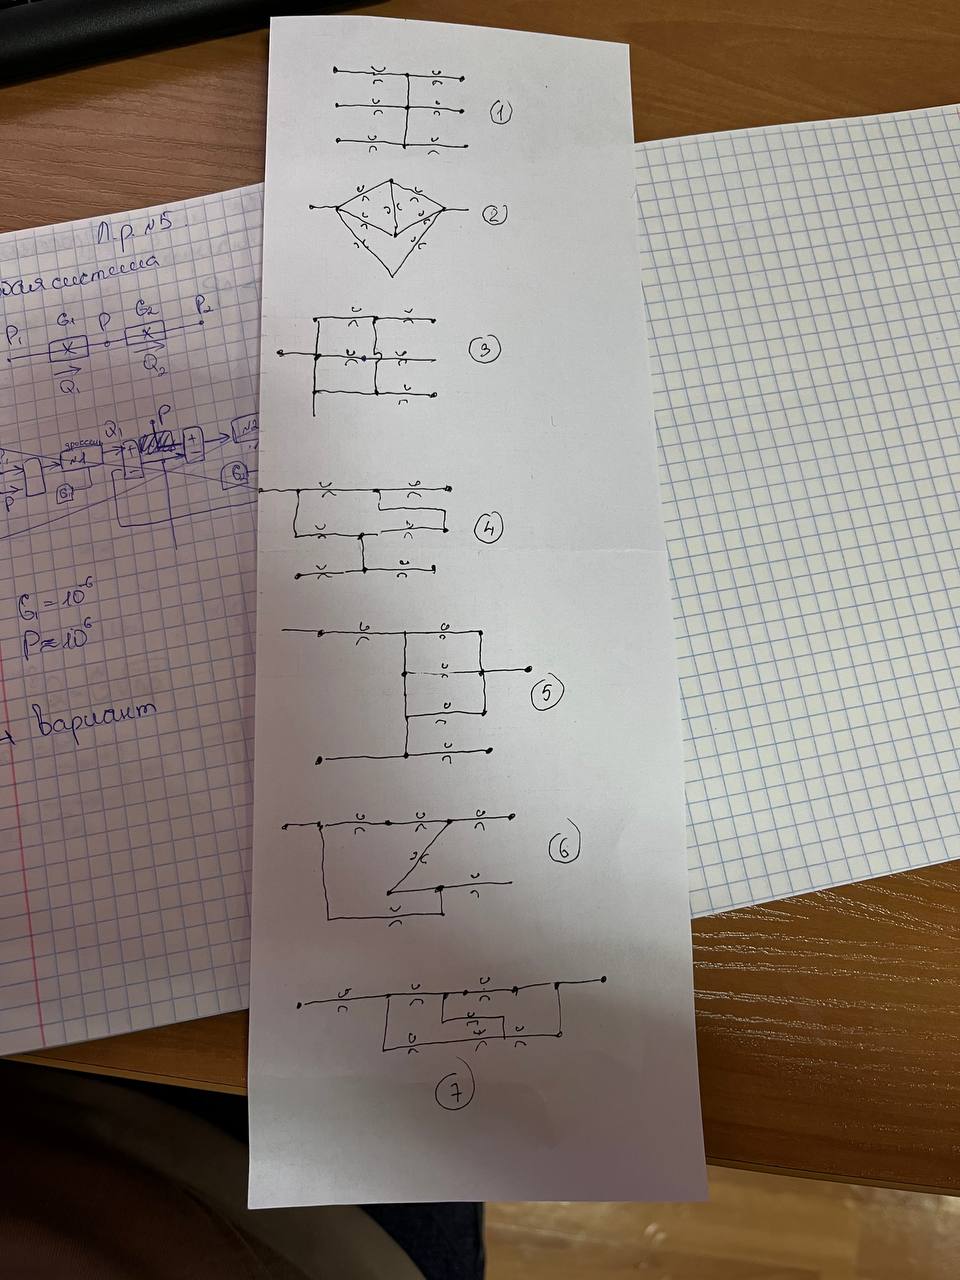 П.р. №5.
система
P₁ G₁ P G₂ P₂
Q₁ Q₂
дроссель Q₁ P
№1 + + №2
P G₁ - G₂
G₁ = 10⁻⁶
P ≈ 10⁶
Вариант
1
2
3
4
5
6
7